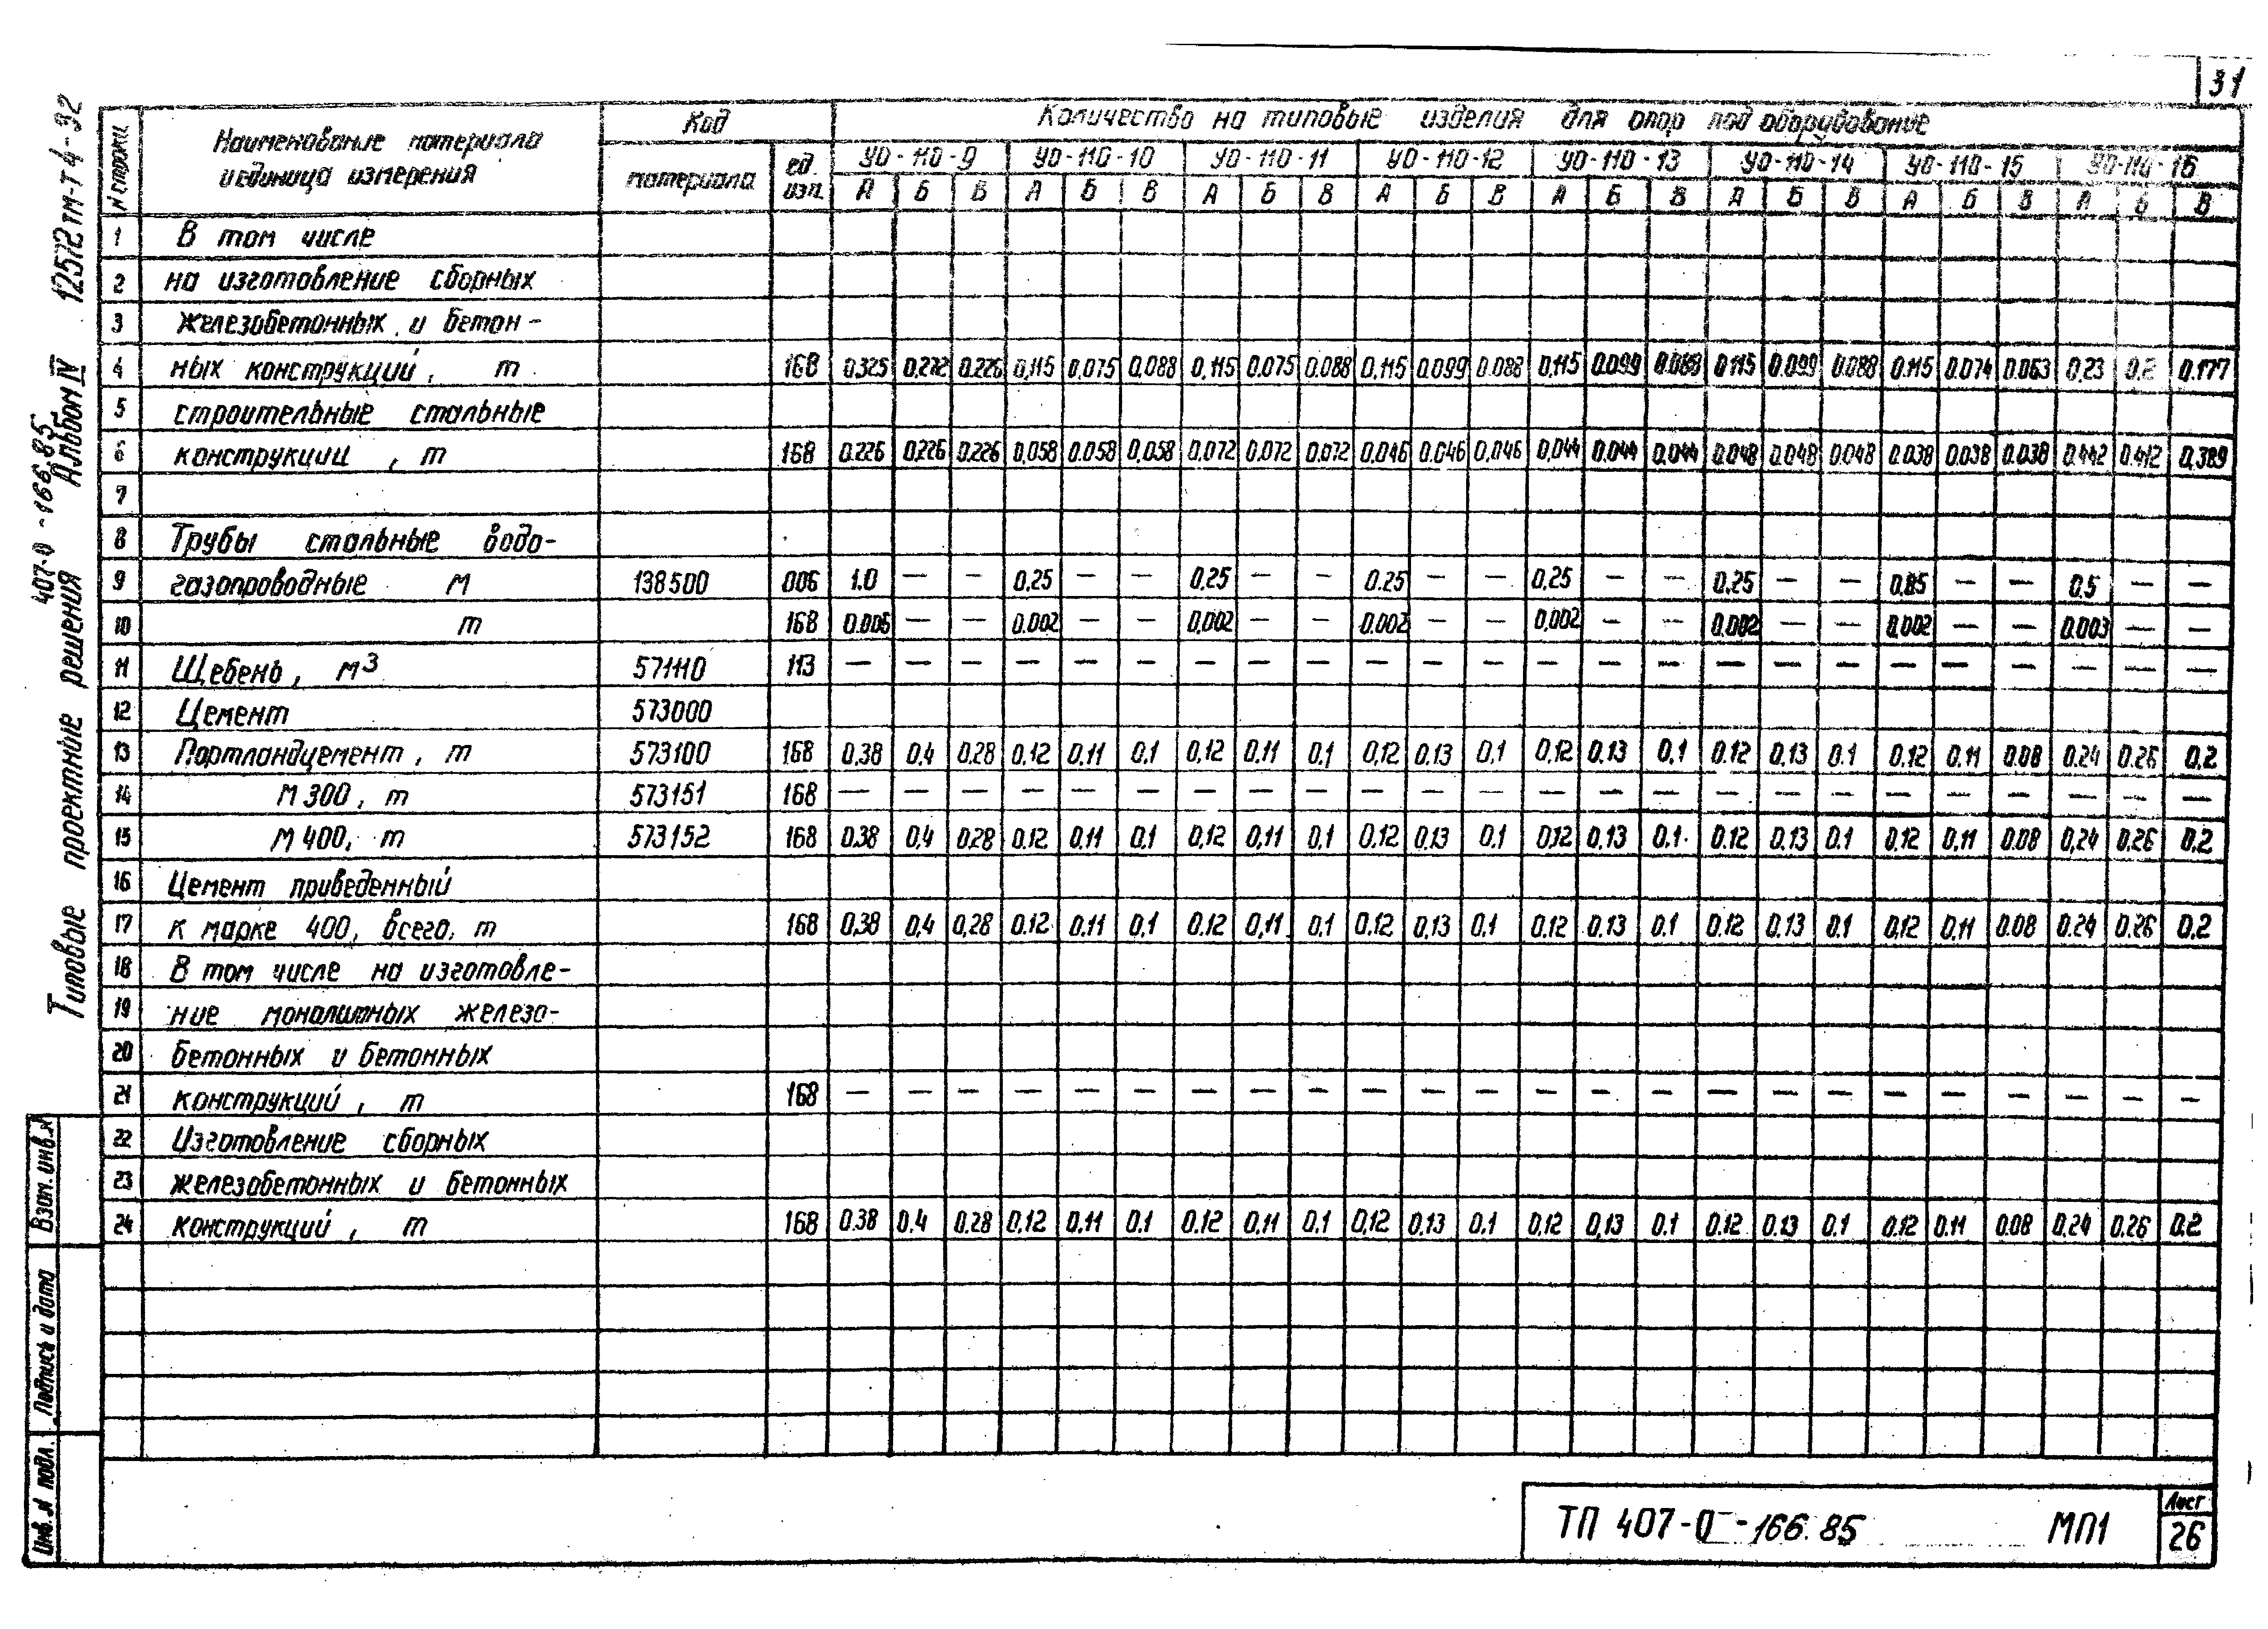 31
Количество на типовые изделия для опор под оборудование
N строки Наименование материала и единица измерения Код материала ед. изм.
УО-110-9 УО-110-10 УО-110-11 УО-110-12 УО-110-13 УО-110-14 УО-110-15 УО-110-16
А Б В А Б В А Б В А Б В А Б В А Б В А Б В А Б В
1 В том числе
2 на изготовление сборных
3 железобетонных и бетон-
4 ных конструкций, т 168 0.325 0.272 0.226 0,115 0,075 0,088 0,115 0.075 0.088 0.115 0.099 0.088 0,115 0.099 0.088 0.115 0.099 0.088 0.115 0.074 0.063 0.23 0.2 0.177
5 строительные стальные
6 конструкции, т 168 0.226 0.226 0.226 0,058 0.058 0,058 0.072 0.072 0.072 0.046 0.046 0,046 0,044 0.044 0.044 0.048 0.048 0.048 0.038 0.038 0.038 0.442 0.412 0,389
7
8 Трубы стальные водо-
9 газопроводные м 138500 006 1.0 — — 0,25 — — 0.25 — — 0.25 — — 0,25 — — 0.25 — — — — 0.5 — —
10 т 168 0.006 — — 0.002 — — 0,002 — — 0.002 — — 0,002 — — 0.002 — — 0.002 — — 0.003 — —
11 Щебень, м3 571110 113 — — — — — — — — — — — — — — — — — — — — — — — —
12 Цемент 573000
13 Портландцемент, т 573100 168 0,38 0.4 0.28 0.12 0.11 0.1 0,12 0.11 0,1 0,12 0.13 0,1 0.12 0.13 0,1 0.12 0.13 0.1 0.12 0.11 0.08 0.24 0.26 0.2
14 М 300, т 573151 168 — — — — — — — — — — — — — — — — — — — — — — — —
15 М 400, т 573152 168 0.38 0,4 0.28 0.12 0,11 0.1 0,12 0,11 0,1 0.12 0,13 0.1 0.12 0,13 0.1 0.12 0.13 0.1 0.12 0,11 0.08 0,24 0.26 0.2
16 Цемент приведенный
17 к марке 400, всего, т 168 0,38 0,4 0,28 0.12 0.11 0.1 0.12 0,11 0.1 0.12 0,13 0.1 0.12 0.13 0.1 0.12 0.13 0.1 0.12 0.11 0.08 0.24 0.26 0.2
18 В том числе на изготовле-
19 ние монолитных железо-
20 бетонных и бетонных
21 конструкций, т 168 — — — — — — — — — — — — — — — — — — — — — — — —
22 Изготовление сборных
23 железобетонных и бетонных
24 конструкций, т 168 0.38 0.4 0.28 0.12 0.11 0.1 0.12 0.11 0.1 0,12 0.13 0.1 0,12 0,13 0.1 0.12 0.13 0.1 0.12 0.11 0.08 0.24 0.26 0.2
Типовые проектные решения 407-0-166.85 Альбом IV 12572тм-т4-32
Взам. инв. N
Подпись и дата
Инв. N подл.
ТП 407-0-166.85 МП1
Лист
26